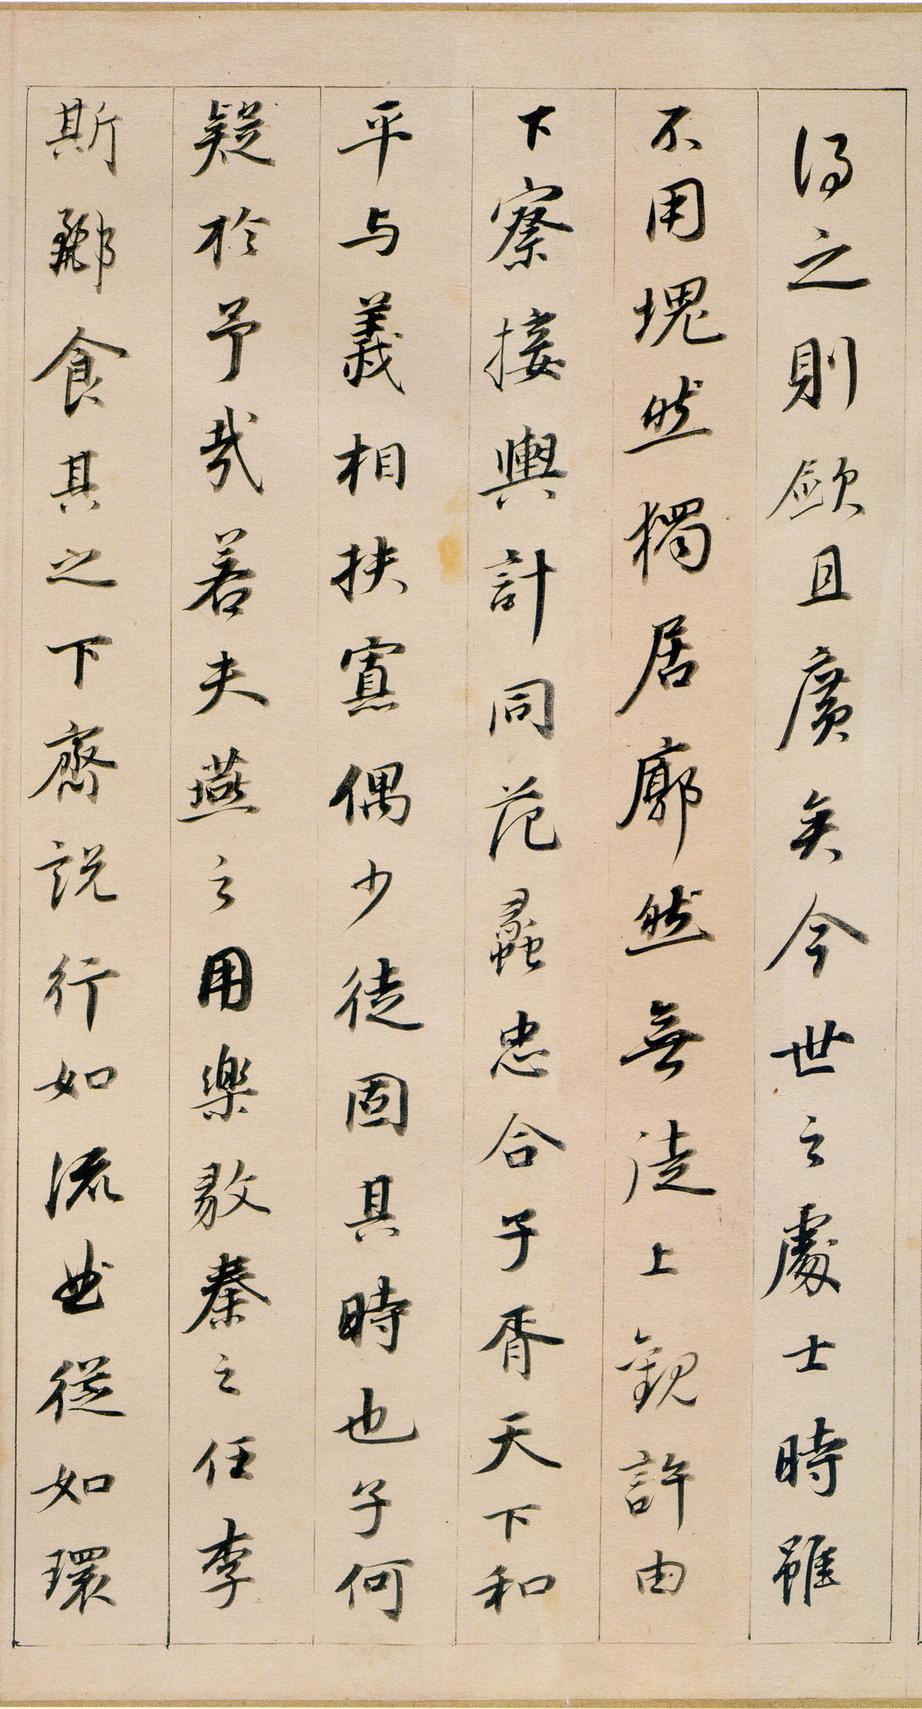 得之則且廣矣今世之處士時雖
不用塊然獨居廓然無徒上觀許由
下察接輿計同范蠡忠合子胥天下和
平与義相扶寡偶少徒固其時也子何
疑於予哉若夫燕之用樂毅秦之任李
斯酈食其之下齊説行如流曲從如環